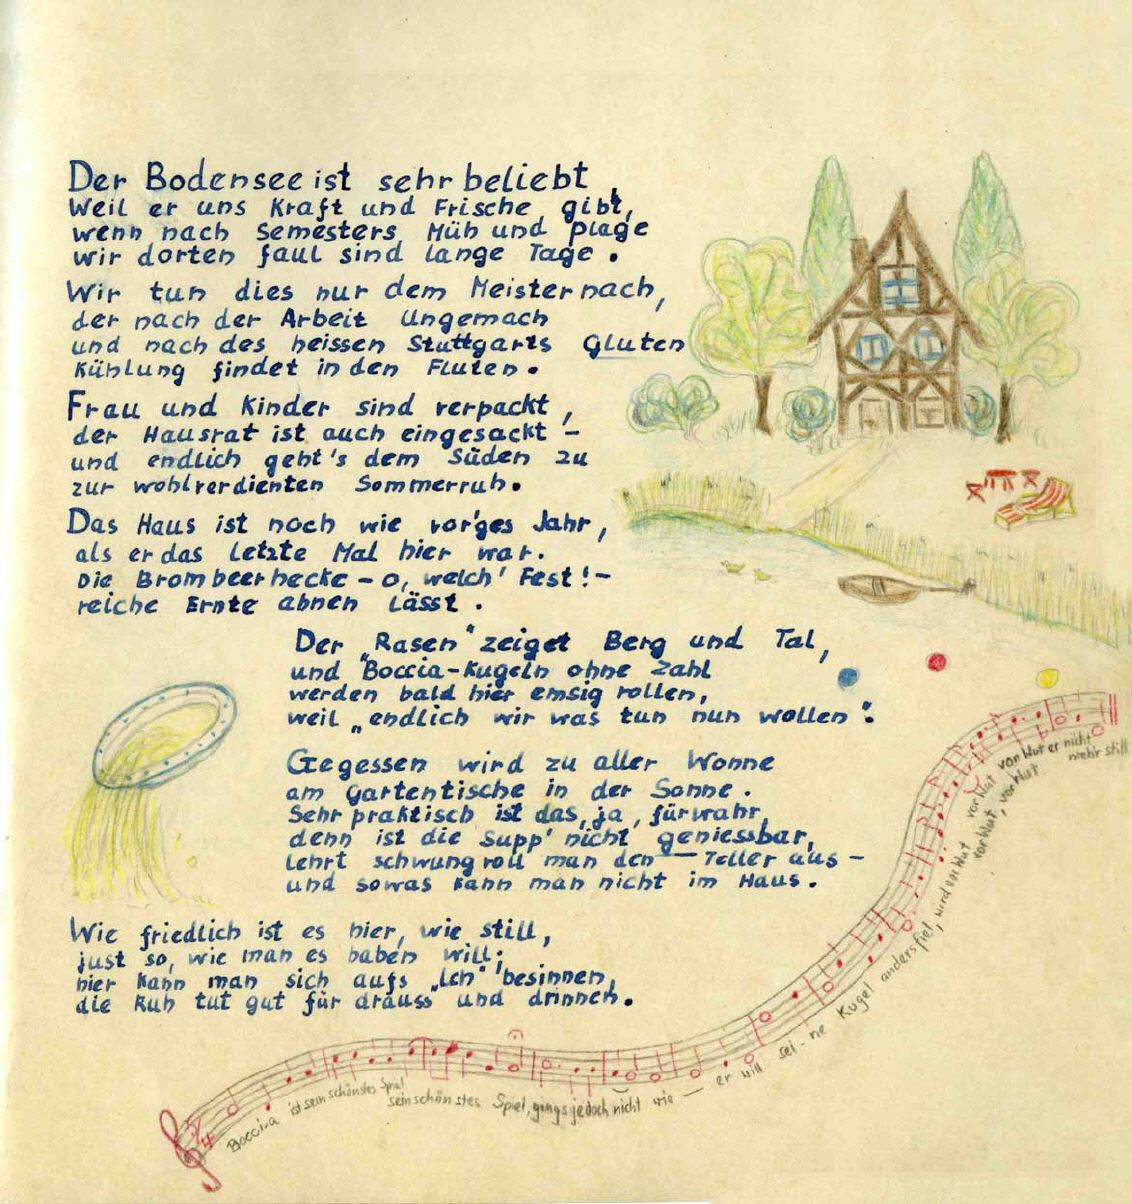 Der Bodensee ist sehr beliebt,
Weil er uns Kraft und Frische gibt,
wenn nach Semesters Müh und plage
wir dorten faul sind lange Tage.
Wir tun dies nur dem Meister nach,
der nach der Arbeit Ungemach
und nach des heissen Stuttgarts Gluten
Kühlung findet in den Fluten.
Frau und Kinder sind verpackt,
der Hausrat ist auch eingesackt –
und endlich geht's dem Süden zu
zur wohlverdienten Sommerruh.
Das Haus ist noch wie vor'ges Jahr,
als er das letzte Mal hier war.
Die Brombeerhecke – o, welch' Fest! –
reiche Ernte ahnen lässt.
Der „Rasen“ zeiget Berg und Tal,
und Boccia-Kugeln ohne Zahl
werden bald hier emsig rollen,
weil „endlich wir was tun nun wollen“.
Gegessen wird zu aller Wonne
am Gartentische in der Sonne.
Sehr praktisch ist das, ja, fürwahr,
denn ist die Supp' nicht geniessbar,
lehrt schwungvoll man den — Teller aus –
und sowas kann man nicht im Haus.
Wie friedlich ist es hier, wie still,
just so, wie man es haben will;
hier kann man sich aufs „Ich“ besinnen,
die Ruh tut gut für drauss' und drinnen.
Boccia ist sein schönstes Spiel
sein schönstes Spiel, gings jedoch nicht wie – er will sei-ne Kugel anders fiel, wird vor Wut
vor Wut, vor Wut
vor Wut vor Wut er nicht
mehr still